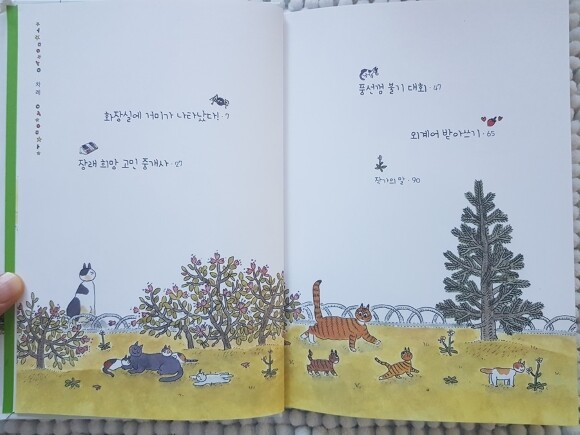 차례
화장실에 거미가 나타났다! · 7
장래 희망 고민 중개사 · 27
풍선껌 불기 대회 · 47
외계어 받아쓰기 · 65
작가의 말 · 90